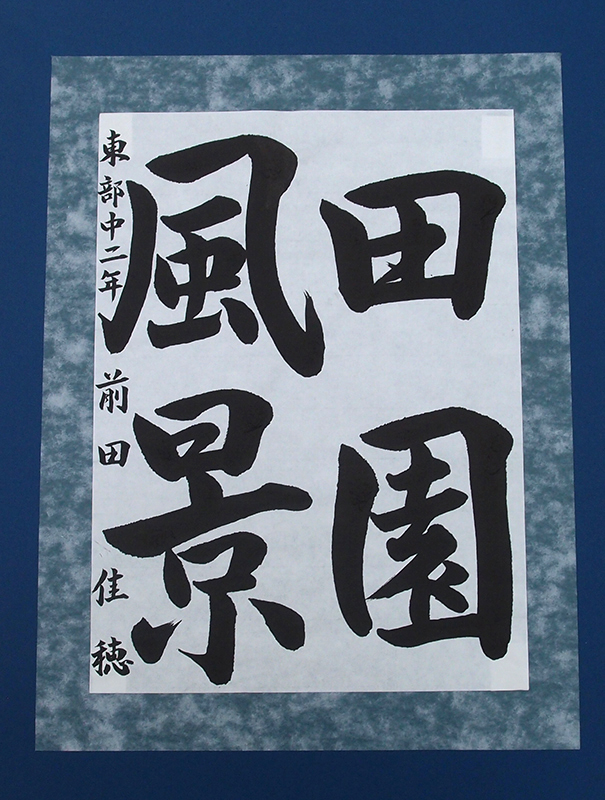 田園
風景
東部中二年 前田 佳穂